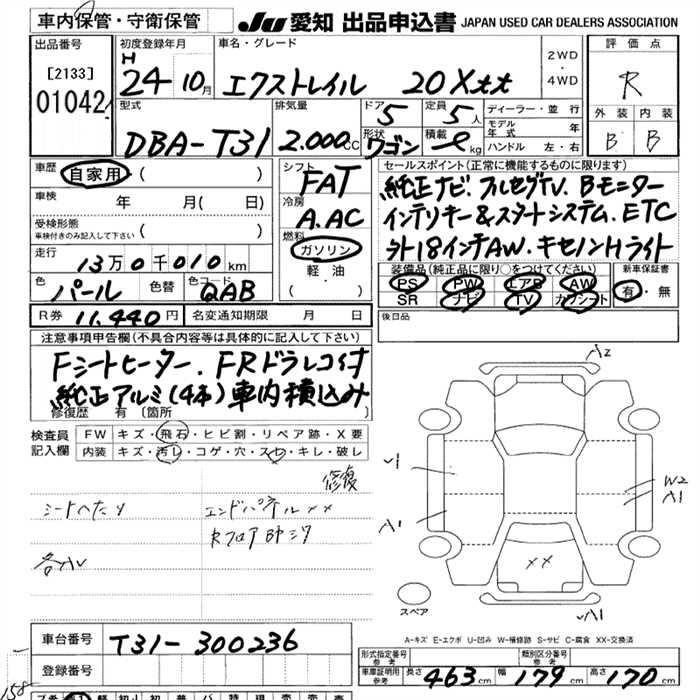 車内保管・守衛保管
JU 愛知 出品申込書 JAPAN USED CAR DEALERS ASSOCIATION
出品番号
[2133]
01042
初度登録年月
H
24 10月
車名・グレード
エクストレイル 20Xtt
2WD
・
4WD
評価点
R
外装 内装
B B
型式
DBA-T31
排気量
2.000cc
ドア 5
定員 5人
形状 ワゴン
積載 kg
ディーラー・並行
モデル年式 年
ハンドル 左・右
車歴 自家用 ( )
車検 年 月( 日)
受検形態
車検付きのみ記入して下さい ( )
走行 13万0千010km
色 パール 色替 色コード QAB
シフト
FAT
冷房
A.AC
燃料
ガソリン
軽油
( )
セールスポイント(正常に機能するものに限ります)
純正ナビ.フルセグTV.Bモニター
インテリキー&スタートシステム.ETC
外18インチAW.キセノンHライト
装備品(純正品に限り○をつけてください)
PS PW エアB AW
SR ナビ TV カワシート
新車保証書
有・無
R券 11.440円 名変通知期限 月 日
後日品
注意事項申告欄(不具合内容等は具体的に記入して下さい)
Fシートヒーター.FRドラレコ付
純正アルミ(4本)車内積込み
修復歴 有 〔箇所 〕
検査員記入欄
FW キズ・飛石・ヒビ割・リペア跡・X要
内装 キズ・汚レ・コゲ・穴・スレ・キレ・破レ
修復
シートヘタリ
エンドパネル××
Rフロア
A2
A1
W2
A1
××
A1
スペア
A-キズ E-エクボ U-凹み W-補修跡 S-サビ C-腐食 XX-交換済
車台番号 T31-300236
登録番号
型式指定番号 参考
類別区分番号 参考
車庫証明用 参考 長さ 463cm 幅 179cm 高さ 170cm
158-